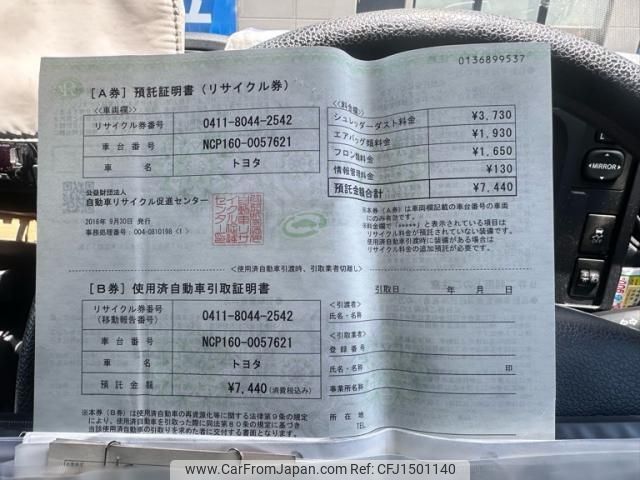 0136899537
[A券] 預託証明書 (リサイクル券)
<<車両欄>>
リサイクル券番号 0411-8044-2542
車台番号 NCP160-0057621
車名 トヨタ
<<料金欄>>
シュレッダーダスト料金 ¥3,730
エアバッグ類料金 ¥1,930
フロン類料金 ¥1,650
情報管理料金 ¥130
預託金額合計 ¥7,440
公益財団法人
自動車リサイクル促進センター
2016年 9月30日 発行
事務処理番号: 004-0810198 <1>
※本券(A券)は車両欄記載の車台番号の車両
にのみ有効です。
※料金欄で「*****」と表示されている項目は
リサイクル料金が預託されていない装備です。
使用済自動車引渡時に装備がある場合は
リサイクル料金の追加預託が必要です。
<使用済自動車引渡時、引取業者切離し>
[B券] 使用済自動車引取証明書
引取日 年 月 日
リサイクル券番号
(移動報告番号) 0411-8044-2542
車台番号 NCP160-0057621
車名 トヨタ
預託金額 ¥7,440(消費税込み)
<引渡者>
氏名・名称
<引取業者>
登録番号
氏名・名称 印
事業所名称
所在地
TEL
※本券(B券)は使用済自動車の再資源化等に関する法律第9条の規定
により、使用済自動車を引取った際に同法第80条の規定に基づき
当該使用済自動車の引取りを求めた者に交付する書面となります。
MIRROR
CarFromJapan.com - CFJ1501140